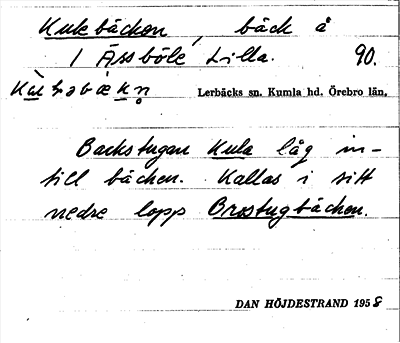 Kulebäcken, bäck å
1 Åssböle Lilla. 90.
Lerbäcks sn. Kumla hd. Örebro län.
Backstugan Kula låg in-
till bäcken. Kallas i sitt
nedre lopp Brostugbäcken.
DAN HÖJDESTRAND 1958